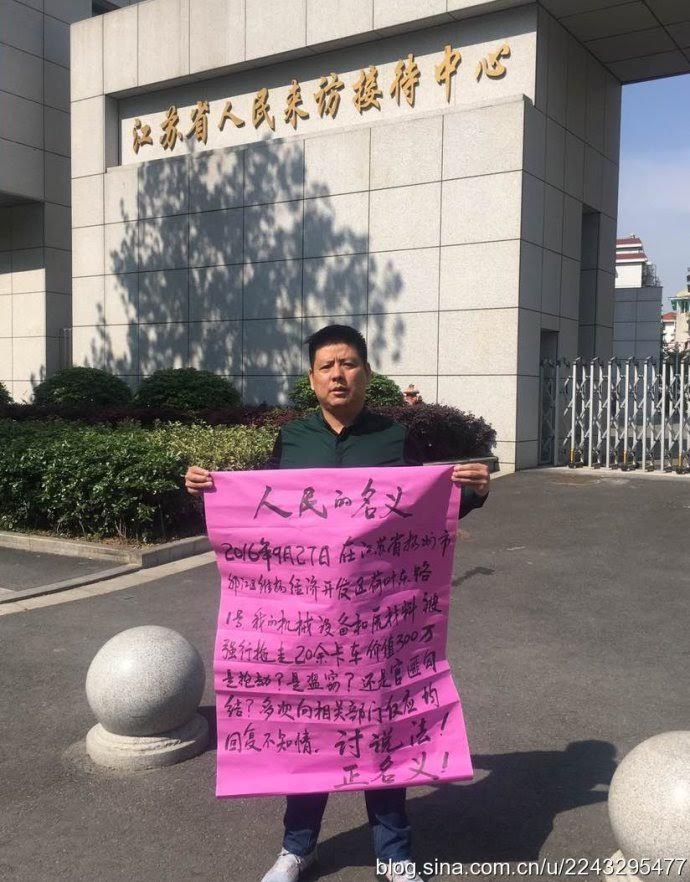 江苏省人民来访接待中心
人民的名义
2016年9月27日在江苏省扬州市
邗江区维扬经济开发区荷叶东路
1号我的机械设备和原材料被
强行拖走20余卡车价值300万
是抢劫?是盗窃?还是官匪勾
结?多次向相关部门反应均
回复不知情。讨说法!
正名义!
blog.sina.com.cn/u/2243295477